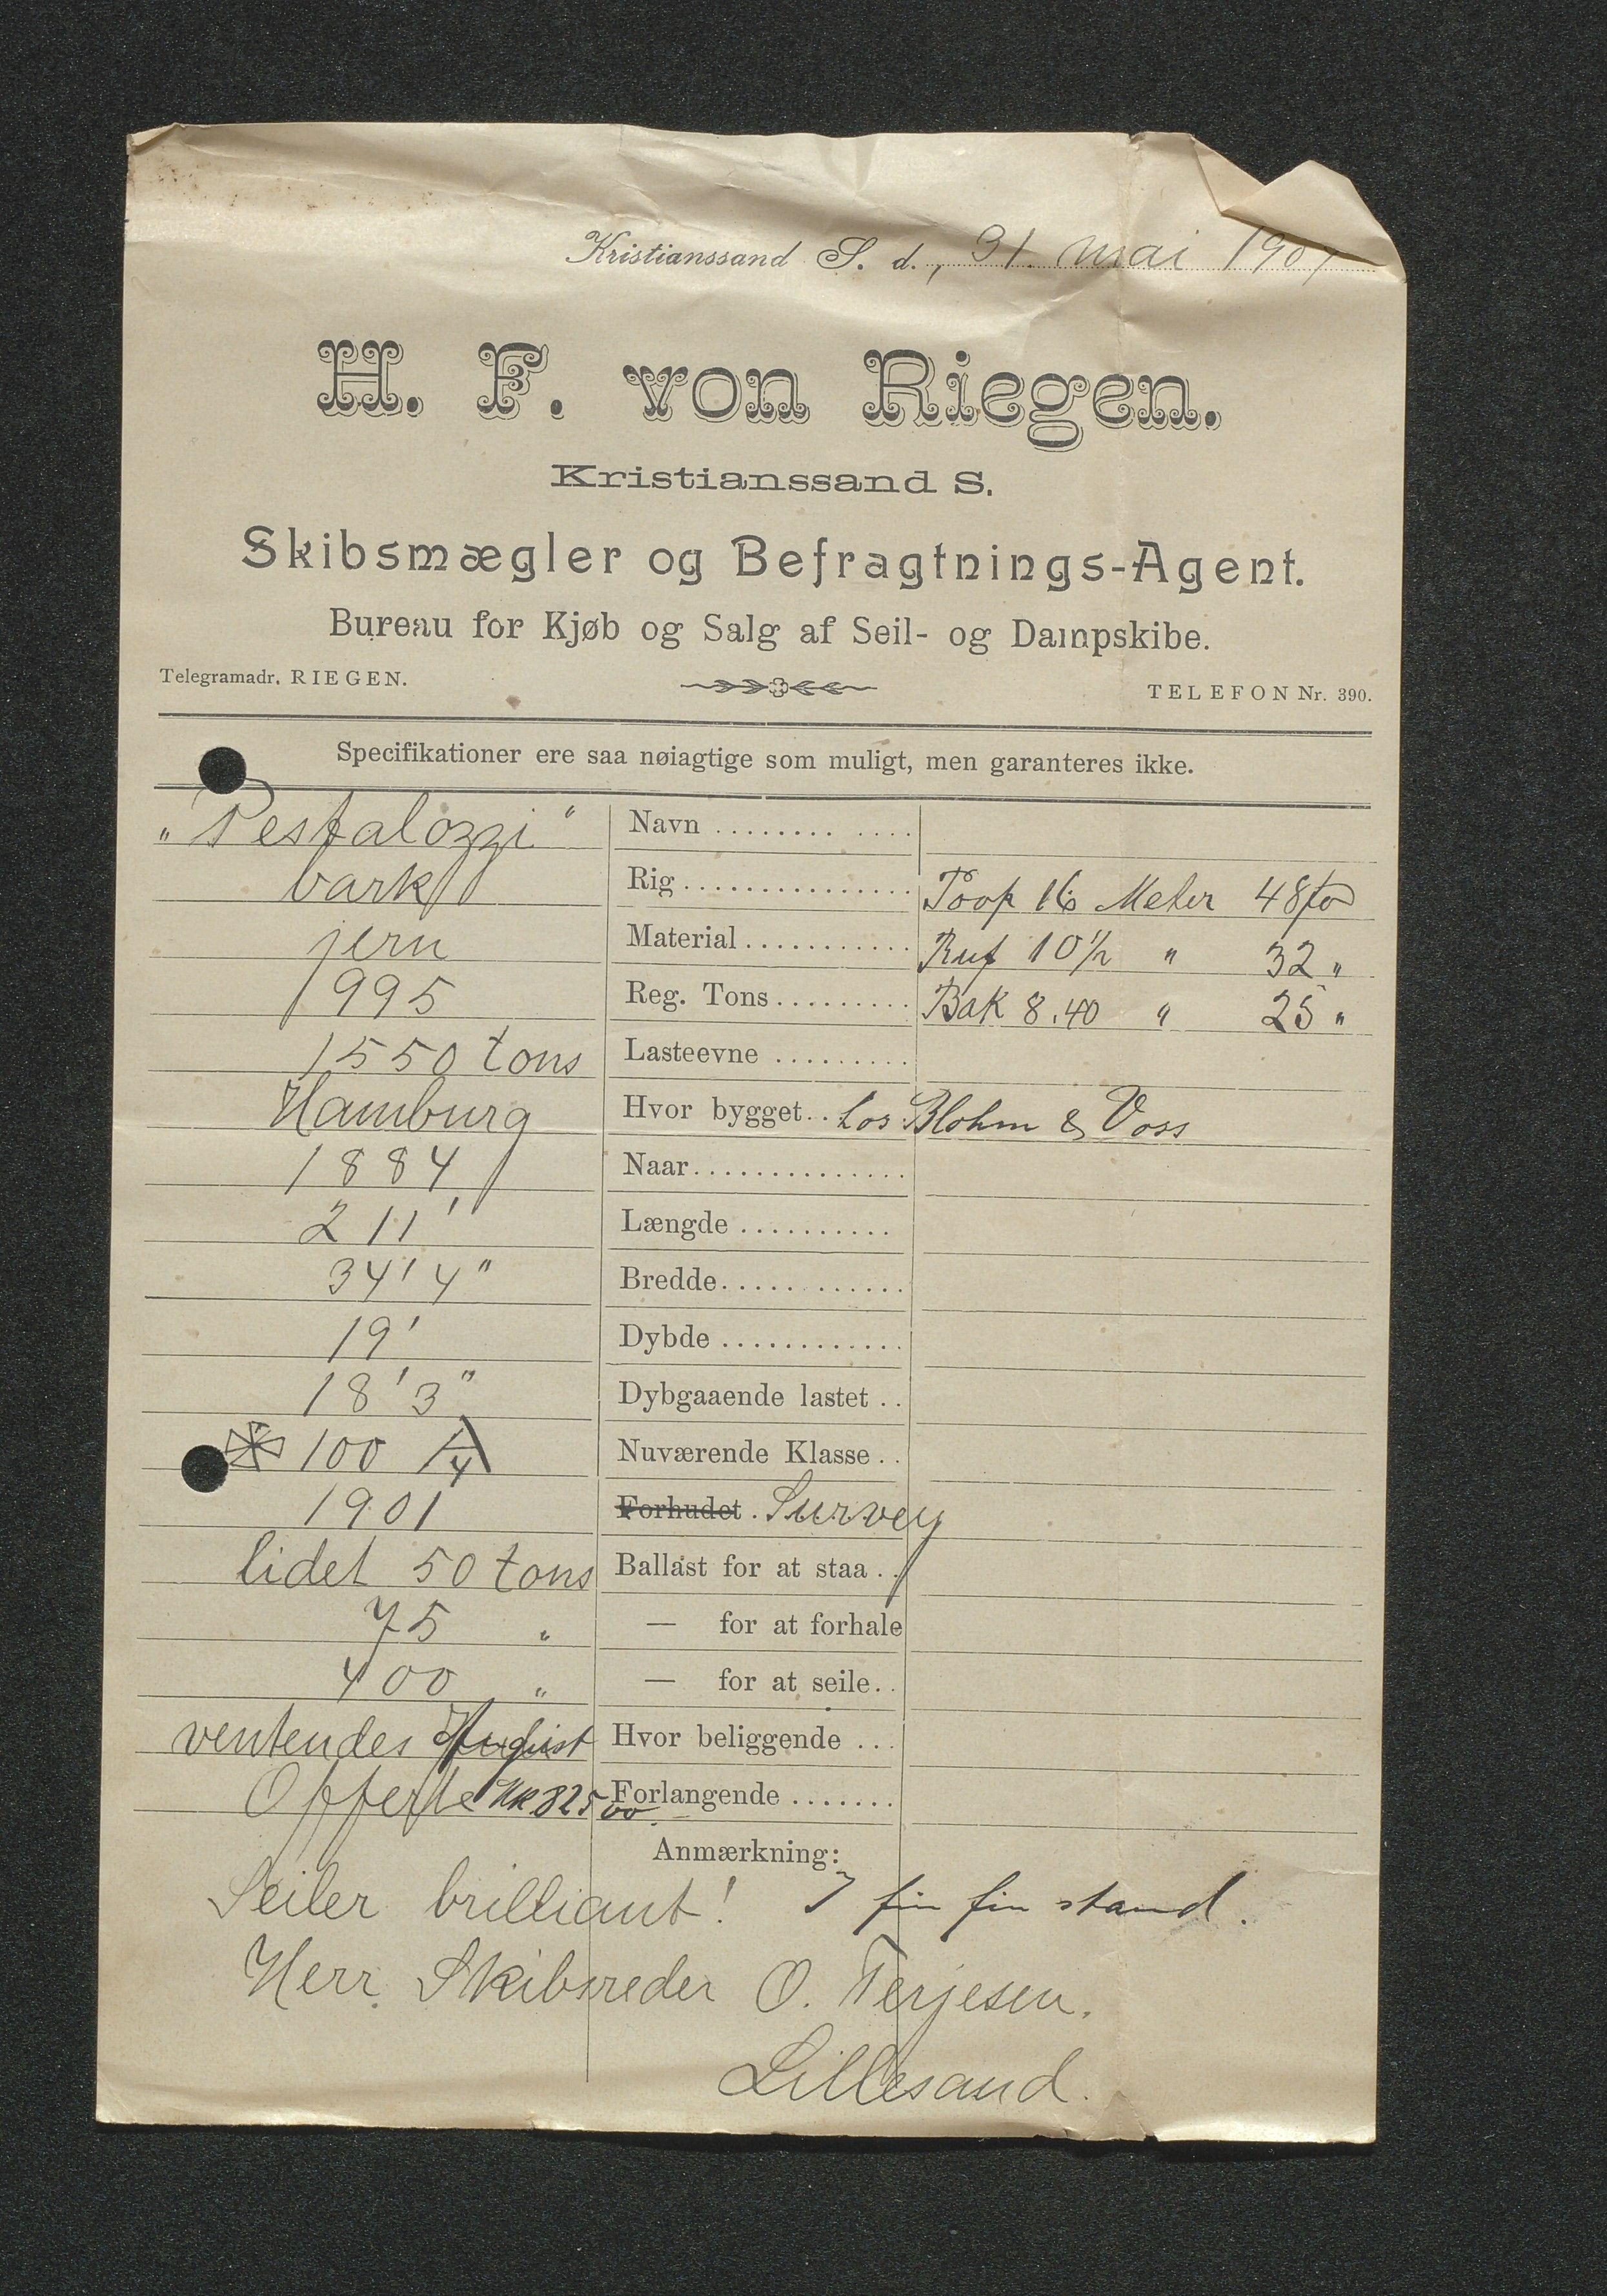 Kristianssand S. d., 31. mai 1907
H. F. von Riegen.
Kristianssand S.
Skibsmægler og Befragtnings-Agent.
Bureau for Kjøb og Salg af Seil- og Dampskibe.
Telegramadr. RIEGEN. TELEFON Nr. 390.
Specifikationer ere saa nøiagtige som muligt, men garanteres ikke.
"Pestalozzi" Navn
bark Rig Poop 16 Meter 48 fod
jern Material Ruf 10 1/2 " 32 "
995 Reg. Tons Bak 8.40 " 25 "
1550 tons Lasteevne
Hamburg Hvor bygget hos Blohm & Voss
1884 Naar
211' Længde
34' 4" Bredde
19' Dybde
18' 3" Dybgaaende lastet
100 A/4 Nuværende Klasse
1901 Forhudet Survey
lidet 50 tons Ballast for at staa
75 " — for at forhale
400 " — for at seile
ventendes August Hvor beliggende
Offerte Mk 82500 Forlangende
Anmærkning:
Seiler brilliant! I fin fin stand.
Herr Skibsreder O. Terjesen.
Lillesand.